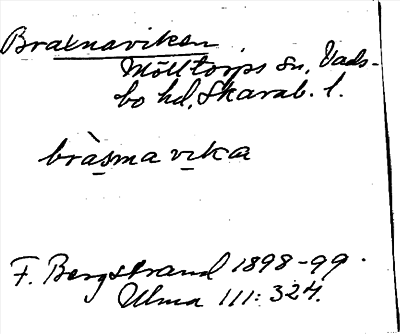 Braxnaviken
Mölltorps sn, Vads-
bo hd, Skarab. l.
bràsma vika
F. Bergstrand 1898-99.
Ulma 111:324.